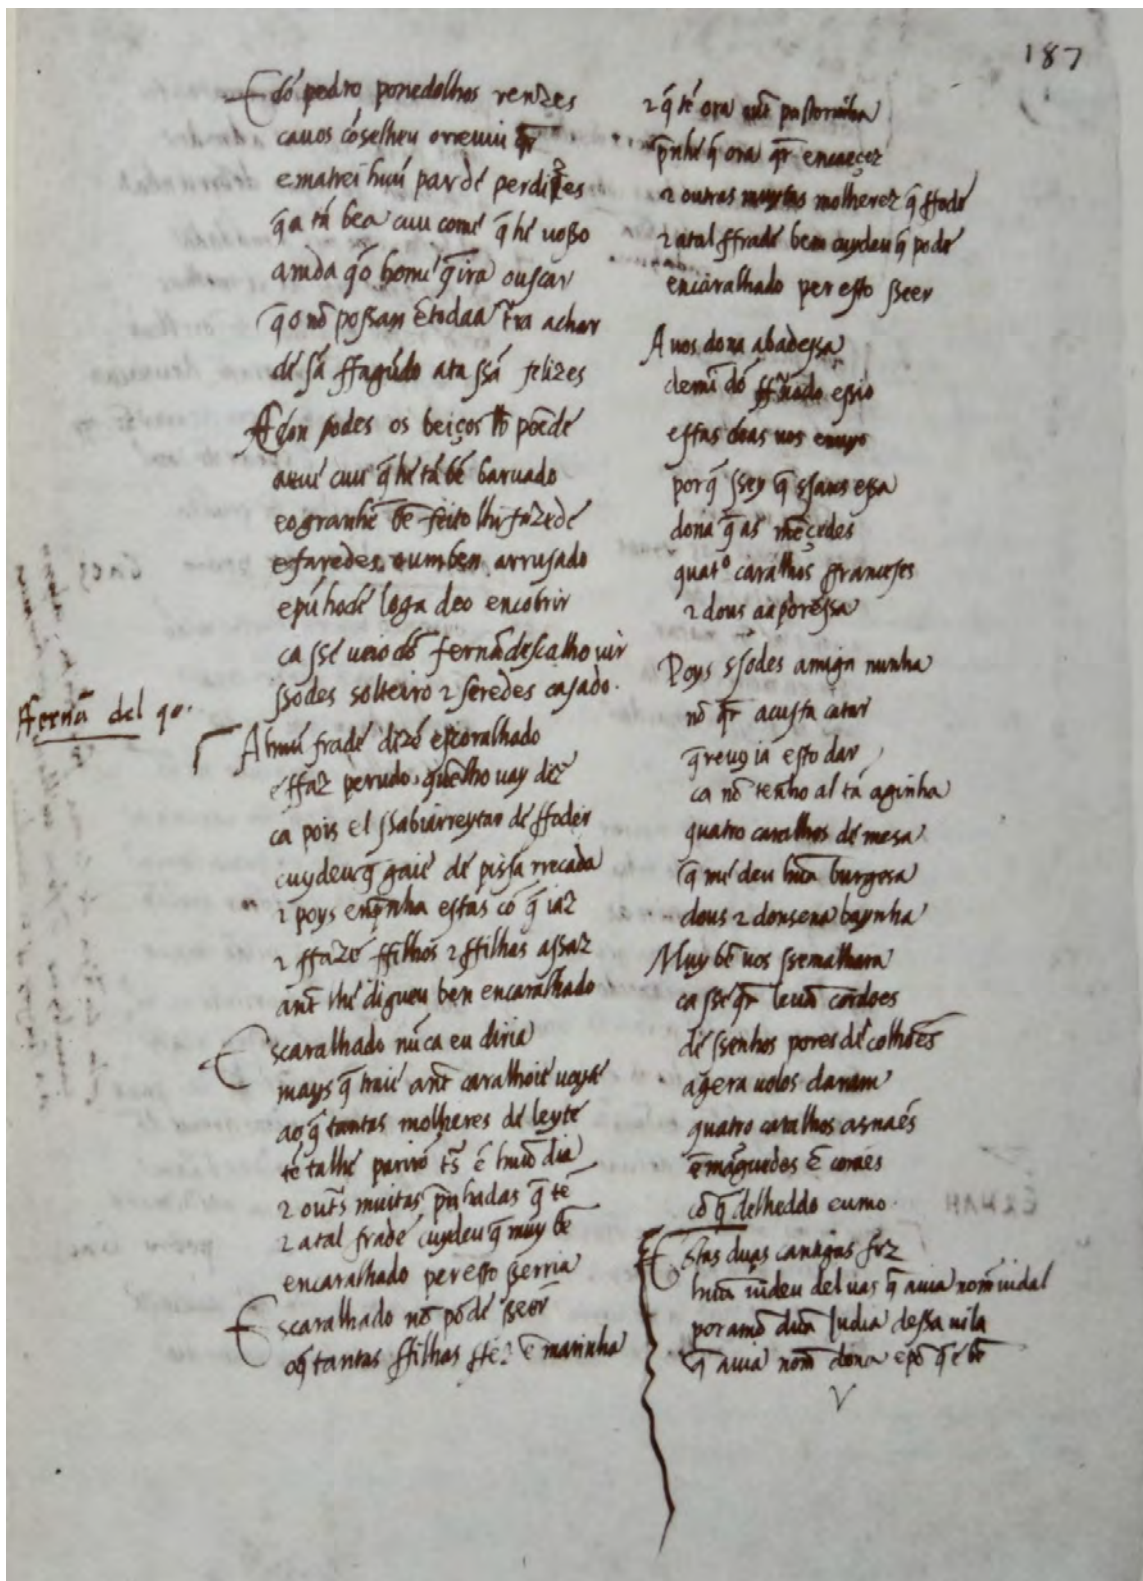 187
E dō pedro ponedolhos renzes
cauos cōselheu oraeuiu qr̄
ematei huū pardē perdizes
q̄ a tā bea cuu comē q̄ hē uoßo
ainda q̄o homē q̄ira ouscar
q̄o nō poßan ētodaa tr̄ra achar
dē ſā ffagūdo ata ſſā felizes
A çon ſodes os beiços lhi pōedē
aquē cuu q̄ hē tā bē baruado
eogranhē bē feito lhi fazedē
efaredes, oumben arrufado
epūhodē loga deo encobrir
ca ſſē ueio dō fernādeſcalho uir
ſſodes solteiro ⁊ ſeredes caſado.
ffernā del go.
A huū fradē dizē eſcaralhado
effaz perudo quēlho uay diz̄
ca pois el ſſabiarreytar dē ffoder
cuydeu q̄ gaiē dē piſſa rrecada
⁊ poys enp̄nha eſtas cō q̄ iaz
⁊ ffazē ffilhos ⁊ ffilhas aßaz
ant̄ lhē digueu ben encaralhado
E scaralhado nūca eu diria
mays q̄ traiē ant̄ caralhoiē ueyſtē
ao q̄ tantas molheres dē leytē
tē talhē pariro tr̄s ē huū dia
⁊ outr̄s muitas p̄nhadas q̄ tē
⁊ atal fradē cuydeu q̄ muy bē
encaralhado pereſto ßerria
E scaralhado nō podē ßeer
oq̄ tantas ffilhas ffez ē marinha
⁊ q̄ tē ora paſtorinha
p̄nhē q̄ ora qr̄ encaeçer
⁊ outras muytas molherez q̄ ffodē
⁊ atal ffradē bem cuydeu q̄ podē
encaralhado per eſto ßeer
A uos dona abadeſſa
demī dō ffr̄nādo eſſio
eſtas doas uos enuyo
porq̄ ſſey q̄ sſodes eſſa
dona q̄ as mēçedes
quatº caralhos ffranceſes
⁊ dous aaporeſſa
Poys sſodes amiga minha
nō qr̄ acuſta catar
q̄reuo ia eſto dar
ca nō tenho al tā aginha
quatro caralhos dē mesa
q̄ mē deu hūa burgesa
dous ⁊ donsena baynha
Muy bē uos ſſemalhara
ca ſſē qr̄ leuā cordoes
dē ſſenhos pares dē colhōēs
agera uolos daram
quatro caralhos asnaēs
ēmāguedes ē coraes
cō q̄ delheddo eumo.
E stas duas cantigas fez
hūū iudeu deluas q̄ auia nom̄ uidal
por amō dūa Iudia deſſa uila
q̄ auia nom̄ dona epō q̄ē bē